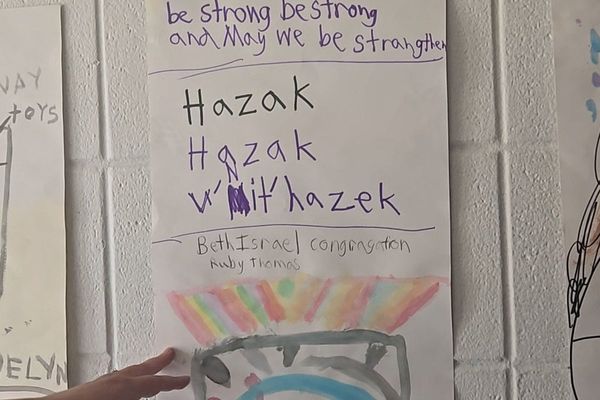 be strong be strong
and May we be strangthen
Hazak
Hazak
v' it'hazek
Beth Israel congragation
Ruby Thomas
WAY
toys
ELYN